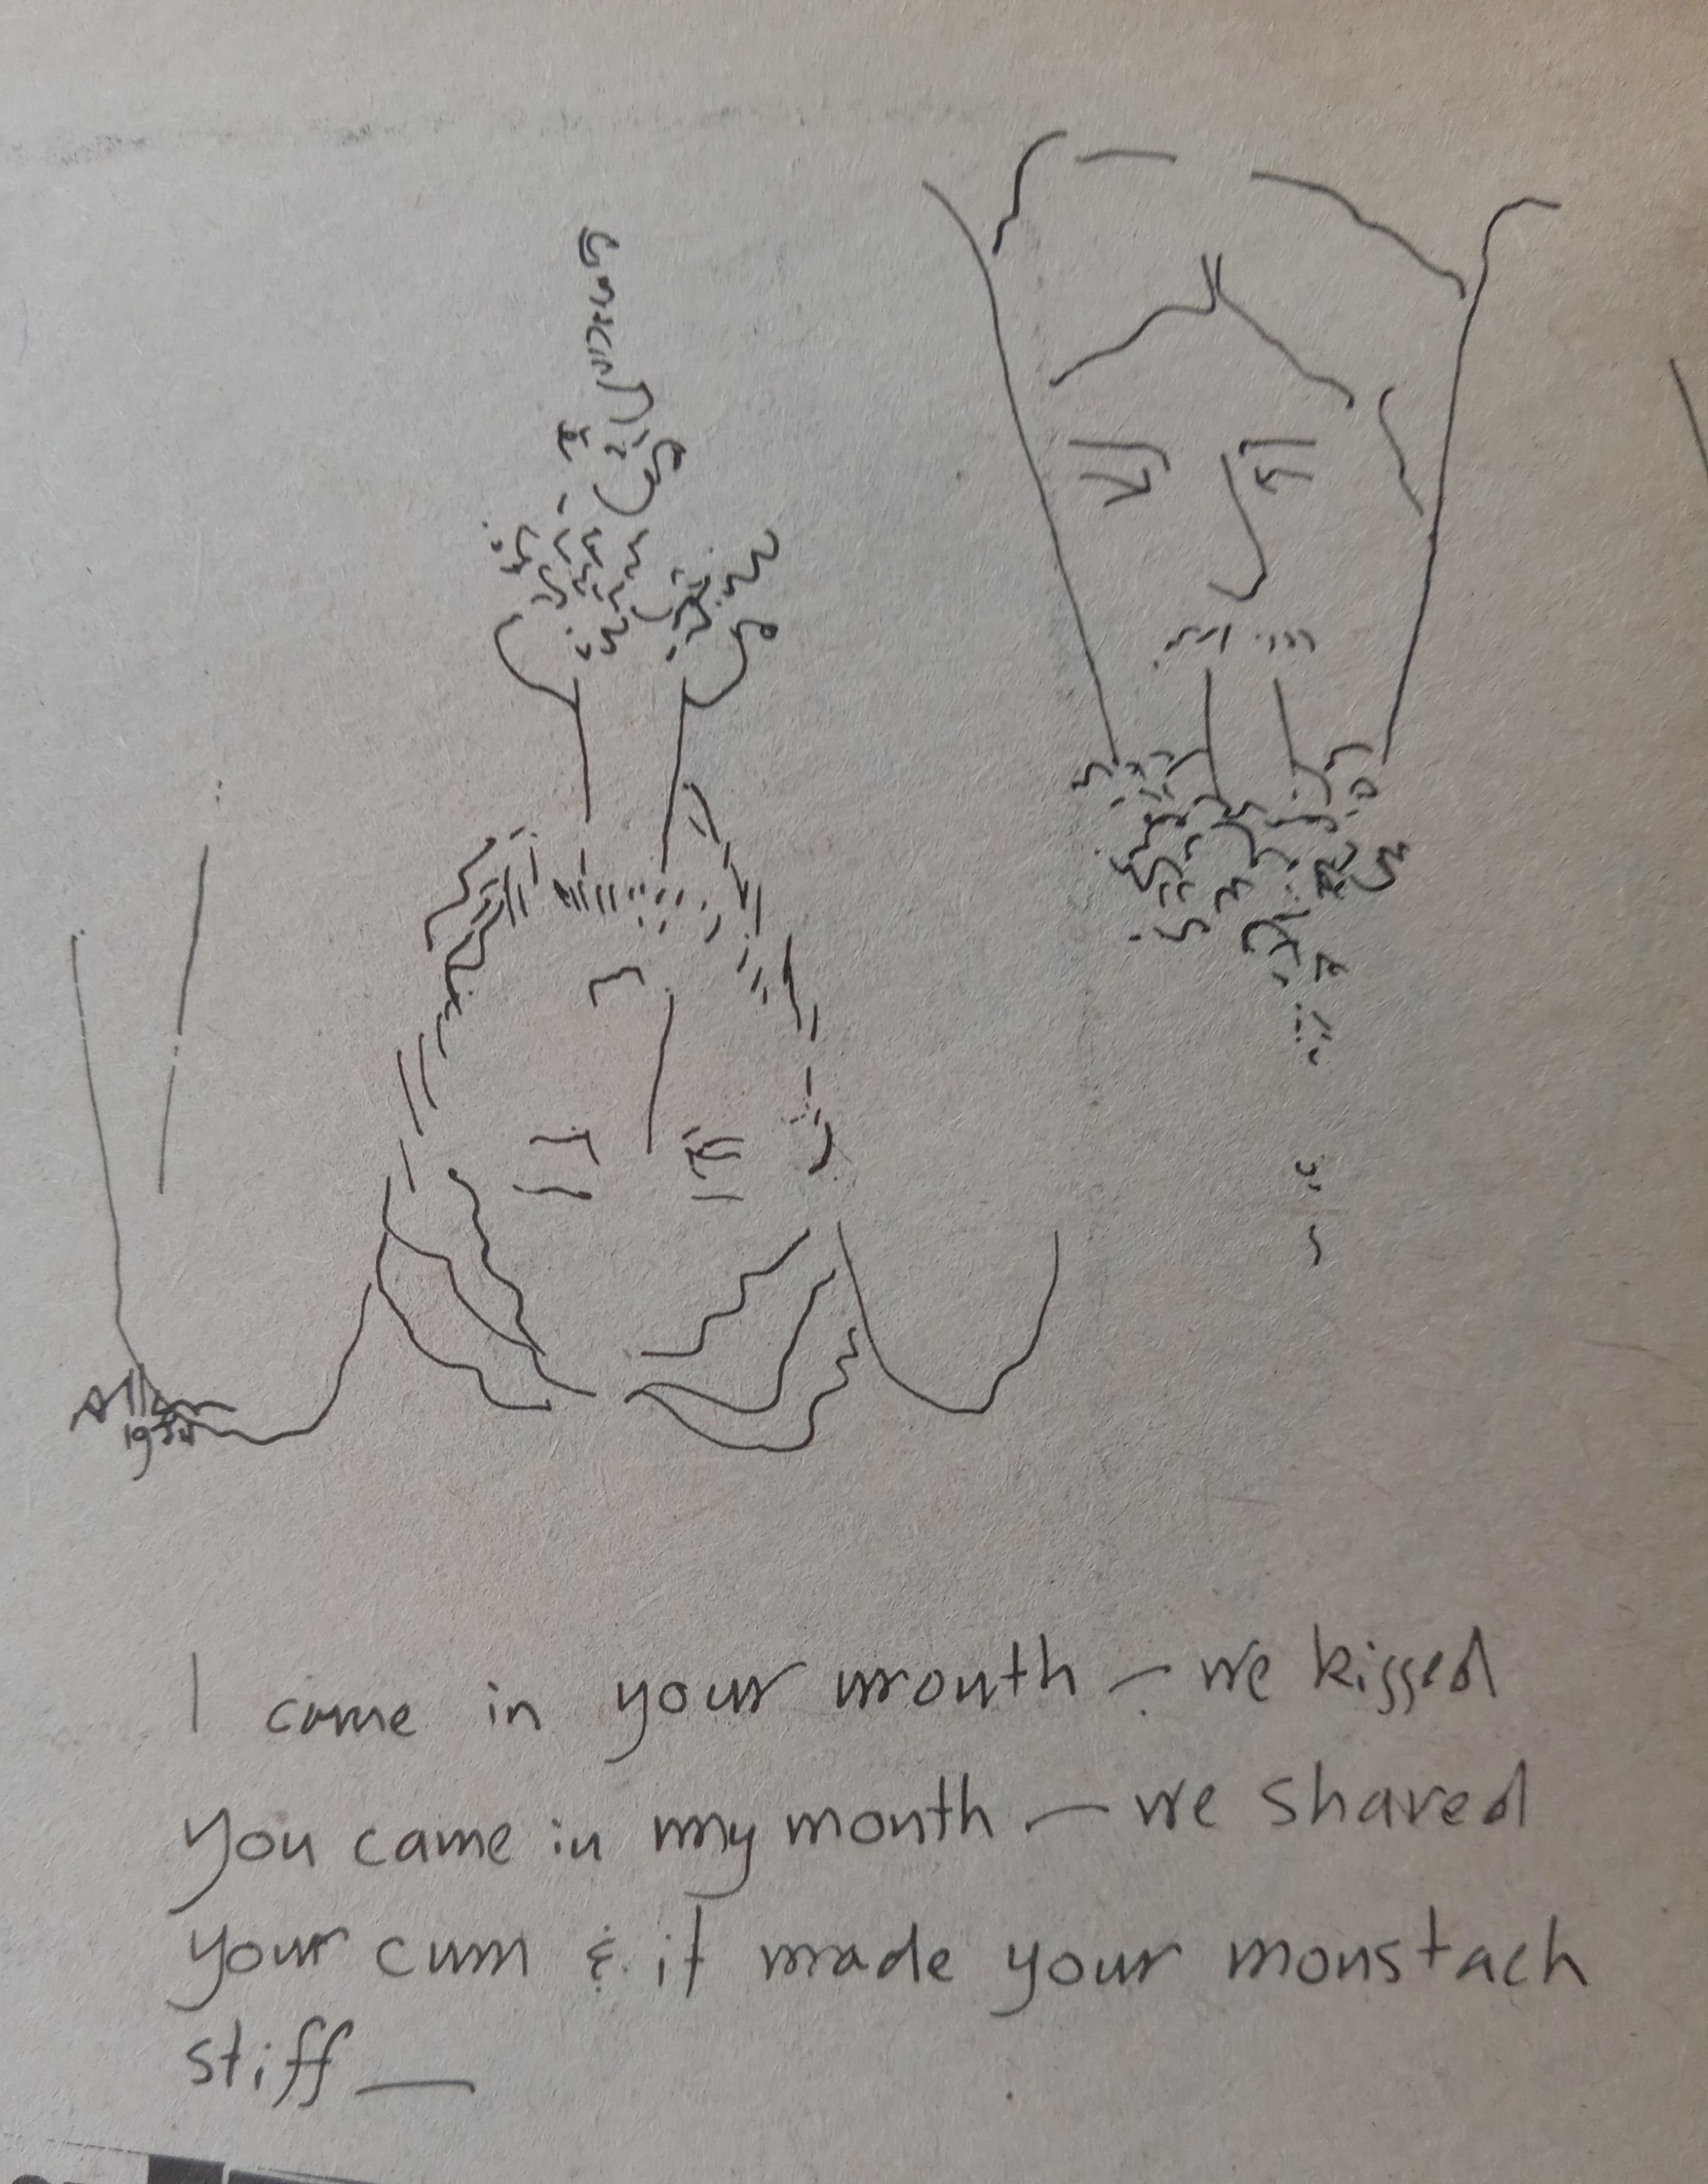 Allan
I came in your mouth — we kissed
you came in my mouth — we shared
your cum & it made your moustach
stiff —